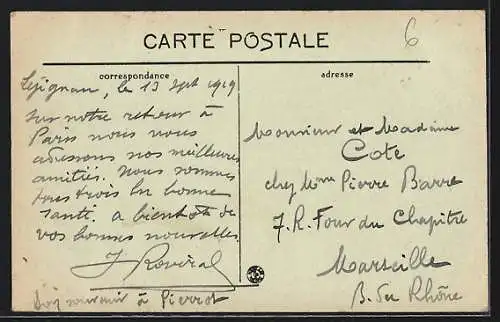 CARTE POSTALE
6
correspondance
adresse
le 13 Sept 1919
Sur notre retour à
Paris nous vous
adressons nos meilleures
amitiés. Nous sommes
tous trois en bonne
santé. a bientôt de
vos bonnes nouvelles
J Roviral
souvenir à Pierrot
Monsieur et Madame
Cote
chez Mme Pierre Barre
7. R. Four du Chapitre
Marseille
B. du Rhône